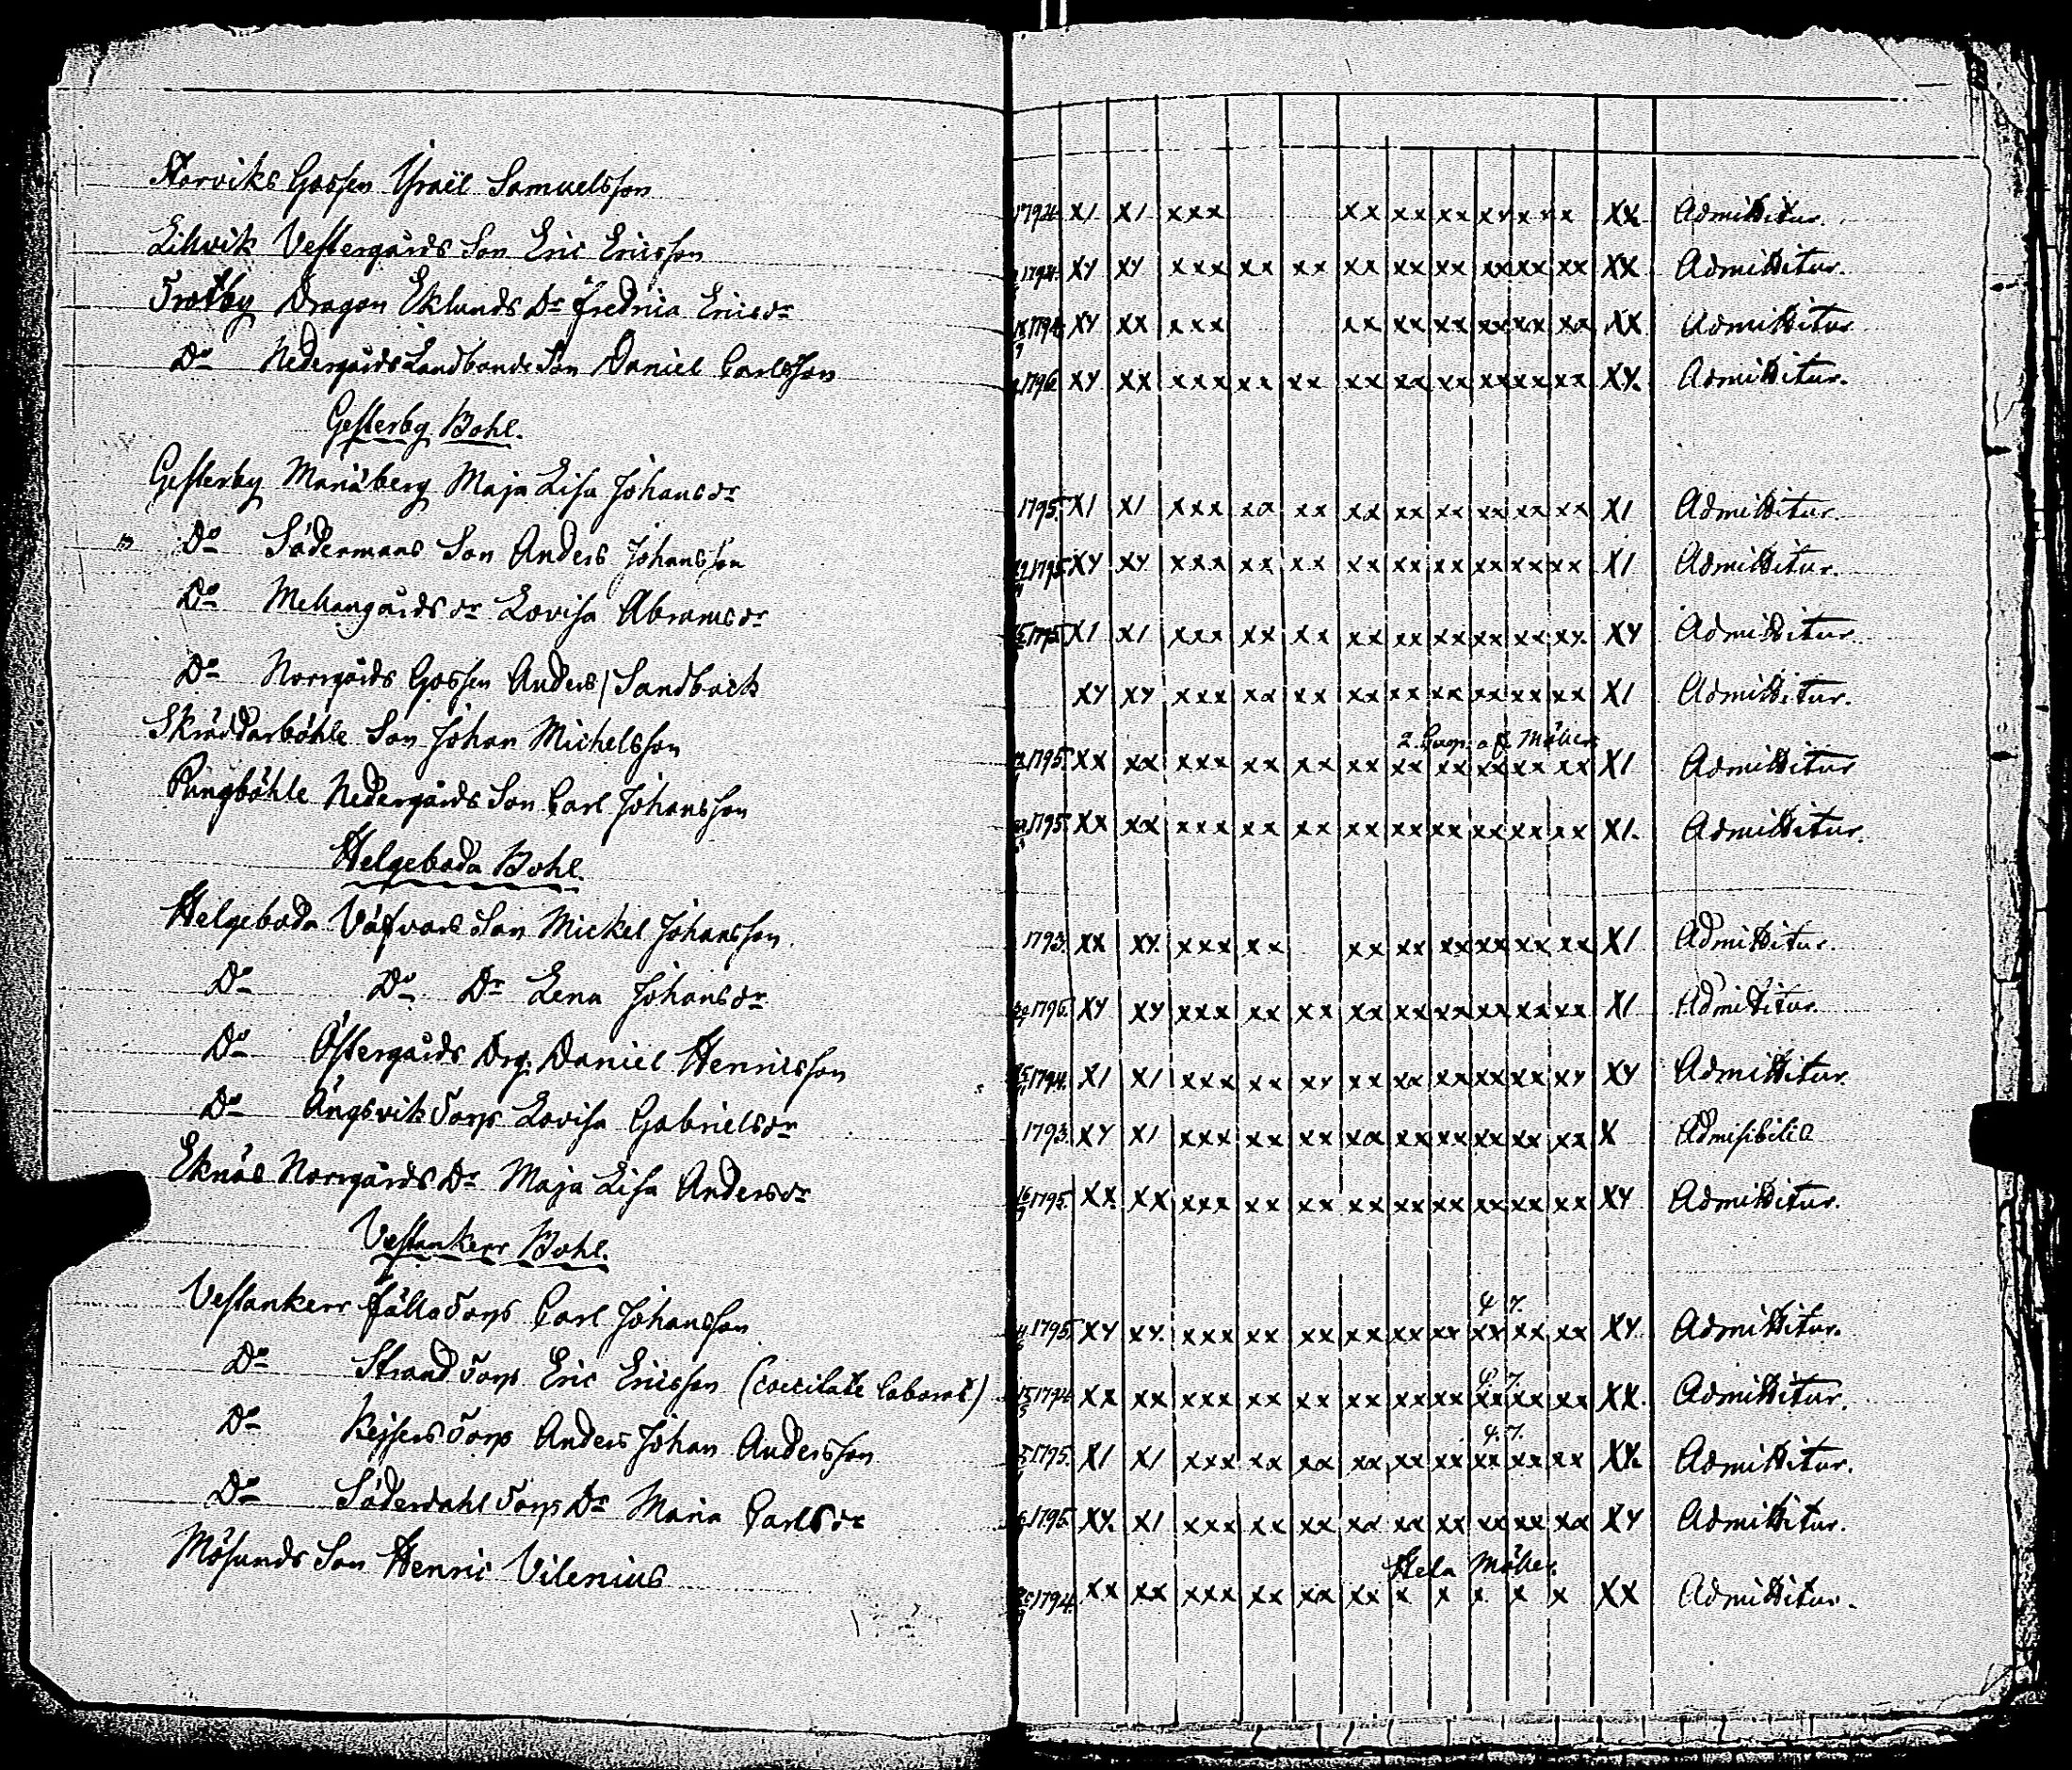 Storviks Gossen Ysraël Samuelsson 1792. X1 X1 xxx xx xx xx xx xx XX Admittitur.
Lillvik Vestergårds Son Eric Ericsson 1794. XY XY xxx xx xx xx xx xx xx xx XX Admittitur.
Trotby Dragon Eklunds Dr Fredrica Ericsdr 1794. XY XX xxx xx xx xx xx xx xx XX Admittitur
Do Nedergårds Landbonde Son Daniel Carlsson 1796 XY XX xxx xx xx xx xx xx xx xx xx XX. Admittitur.
Gesterby Bohl.
Gesterby Mariæberg Maja Lisa Johansdr 1795. X1 X1 xxx xx xx xx xx xx xx xx xx X1 Admittitur.
Do Södermans Son Anders Johansson 1795 XY XY xxx xx xx xx xx xx xx xx xx X1 Admittitur.
Do Mellangårds dr Lovisa Abramsdr 1795 X1 X1 xxx xx xx xx xx xx xx xx xx XY Admittitur
Do Norrgårds Gossen Anders Sandback XY XY xxx xx xx xx xx xx xx xx xx X1 Admittitur.
2. af Möller
Skräddarböhle Son Johan Michelsson 1795. XX xx xxx xx xx xx xx xx xx xx xx X1 Admittitur
Pungböhle Nedergårds Son Carl Johansson 1795. XX xx xxx xx xx xx xx xx xx xx xx X1. Admittitur.
Helgeboda Bohl.
Helgeboda Väfvars Son Mickel Johansson. 1793. XX XX xxx xx xx xx xx xx xx xx X1 Admittitur.
Do Do Dr Lena Johansdr 1796. XY XY xxx xx xx xx xx xx xx xx xx X1 Admittitur.
Do Östergårds Drg. Daniel Henricsson 1794. X1 X1 xxx xx xy xx xx xx xx xx xy XY Admittitur.
Do Ängsvik Torp Lovisa Gabrielsdr 1793. XY X1 xxx xx xx xx xx xx xx xx xx X Admisibilis
Eknäs Norrgårds Dr Maja Lisa Andersdr 1795. XX XX xxx xx xx xx xx xx xx xx xx XY Admittitur.
Vestankerr Bohl.
4 7.
Vestankerr Fälla Torp Carl Johansson 1795. XY XY. xxx xx xx xx xx xx xx xx xx XY. Admittitur.
4 7.
Do Strand Torp Eric Ericsson (coecitate laborat) 1794 XX xx xxx xx xx xx xx xx xx xx xx XX. Admittitur.
4. 7.
Do Kejsers Torp Anders Johan Andersson 1795. X1 X1 xxx xx xx xx xx xx xx xx xx XX. Admittitur.
Do Söderdahl Torp Dr Maria Carlsdr 1795. XX. X1 xxx xx xx xx xx xx xx xx xx XY Admittitur.
Hela Möller.
Mösunds Son Henric Vilenius 1794. XX xx xxx xx xx xx x x x x x XX Admittitur.